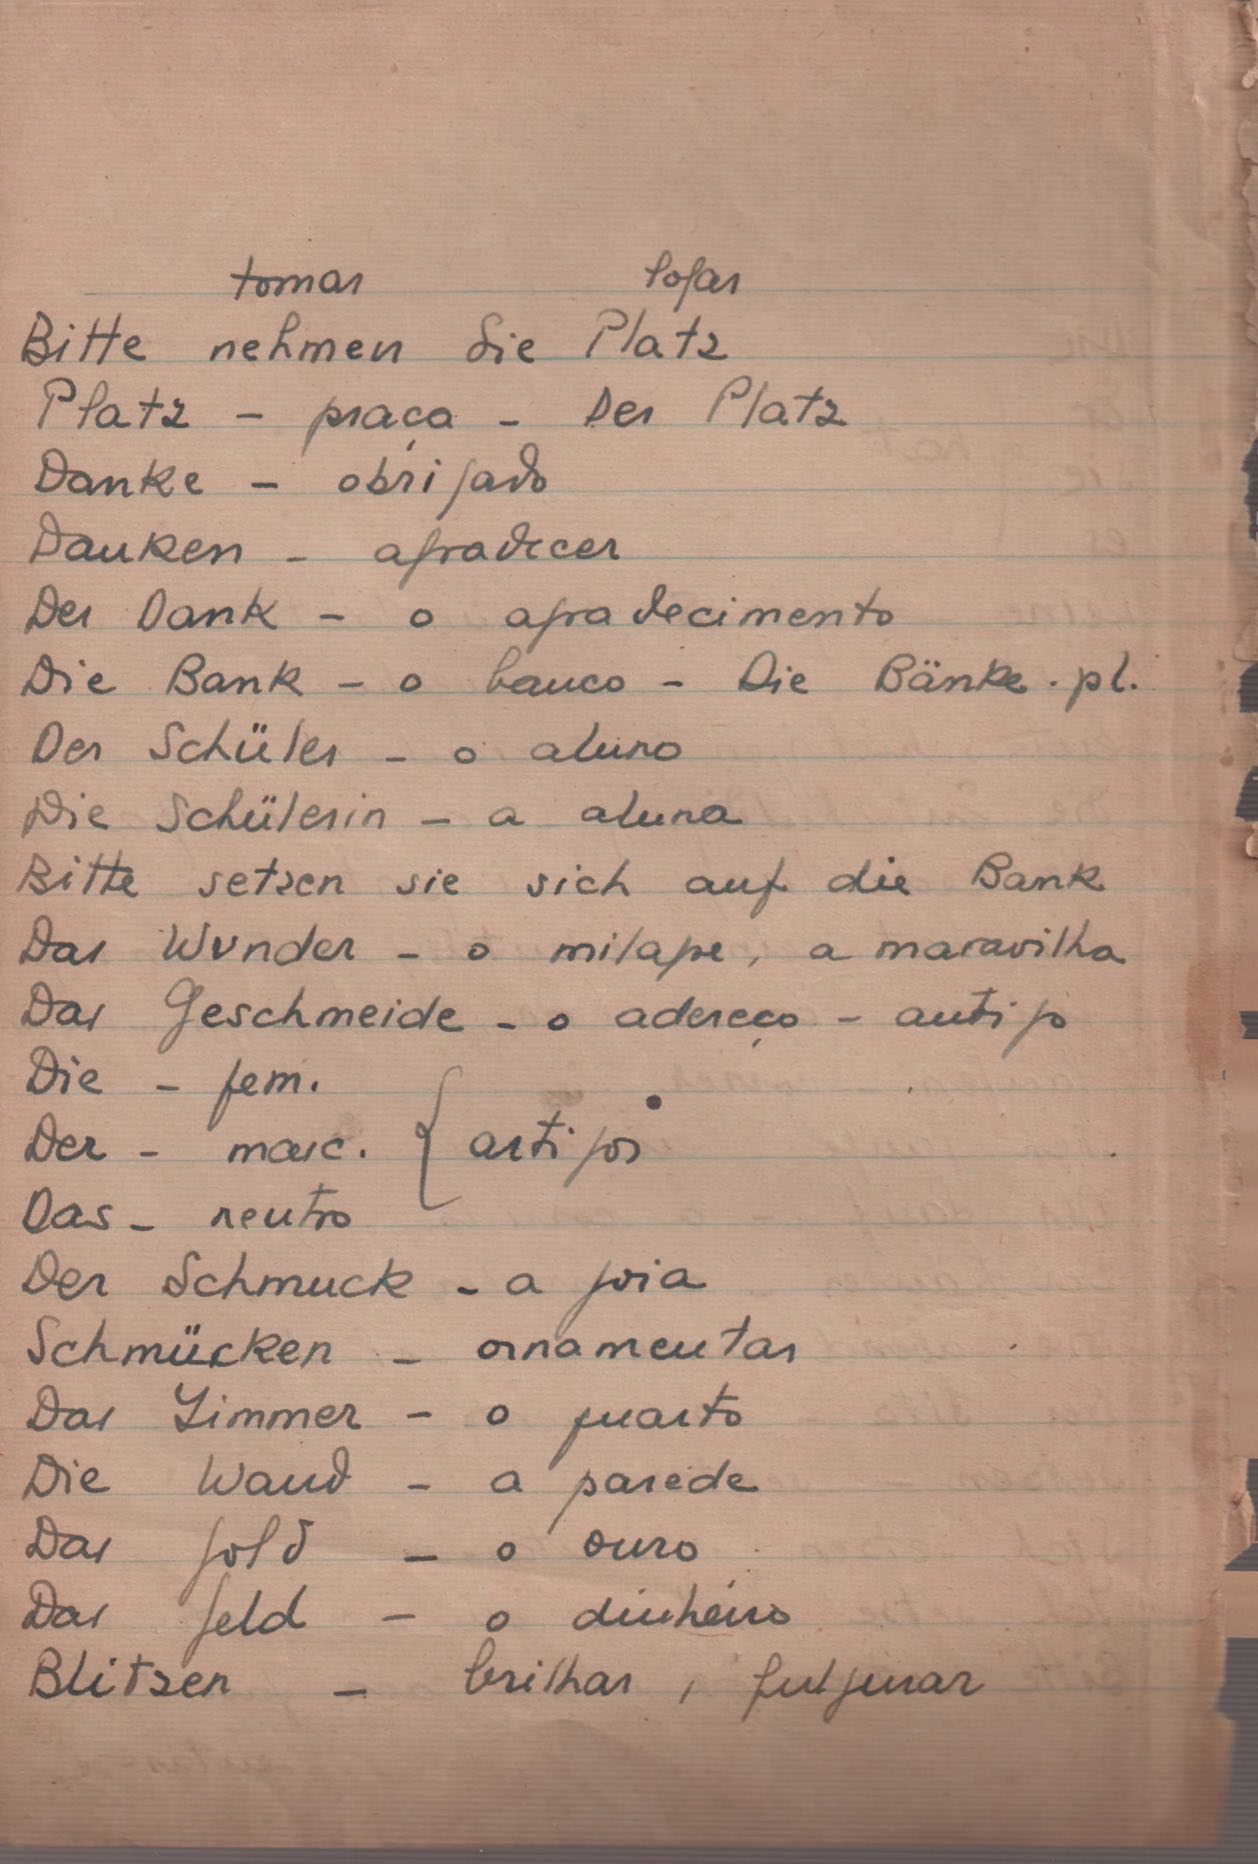 tomar logar
Bitte nehmen Sie Platz
Platz - praça - Der Platz
Danke - obrigado
Danken - agradecer
Der Dank - o agradecimento
Die Bank - o banco - Die Bänke. pl.
Der Schüler - o aluno
Die Schülerin - a aluna
Bitte setzen sie sich auf die Bank
Das Wunder - o milagre, a maravilha
Das Geschmeide - o adereço - antigo
Die - fem.
Der - masc. { artigos
Das - neutro
Der Schmuck - a joia
Schmücken - ornamentar
Das Zimmer - o quarto
Die Wand - a parede
Das Gold - o ouro
Das Geld - o dinheiro
Blitzen - brilhar, fulgurar